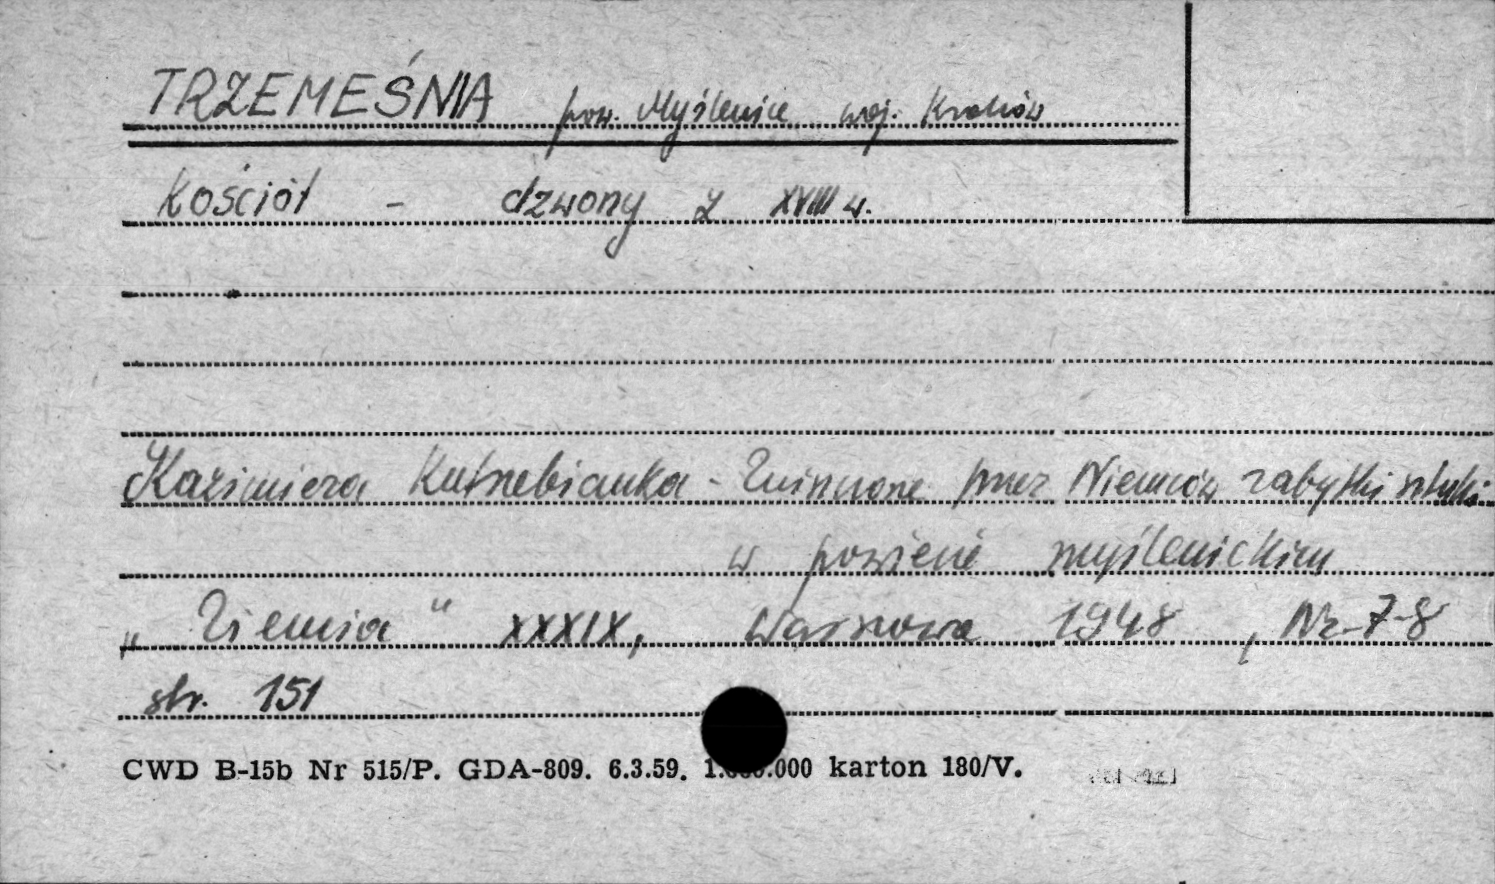 TRZEMEŚNIA pow. Myślenice woj. Kraków
Kościół - dzwony z XVIII w.
Kazimiera Kutrzebianka - Zniszczone przez Niemców zabytki sztuki
w powiecie myślenickim
„Ziemia" XXXIX, Warszawa 1948, Nr 7-8
str. 151
CWD B-15b Nr 515/P. GDA-809. 6.3.59. 1.000.000 karton 180/V.